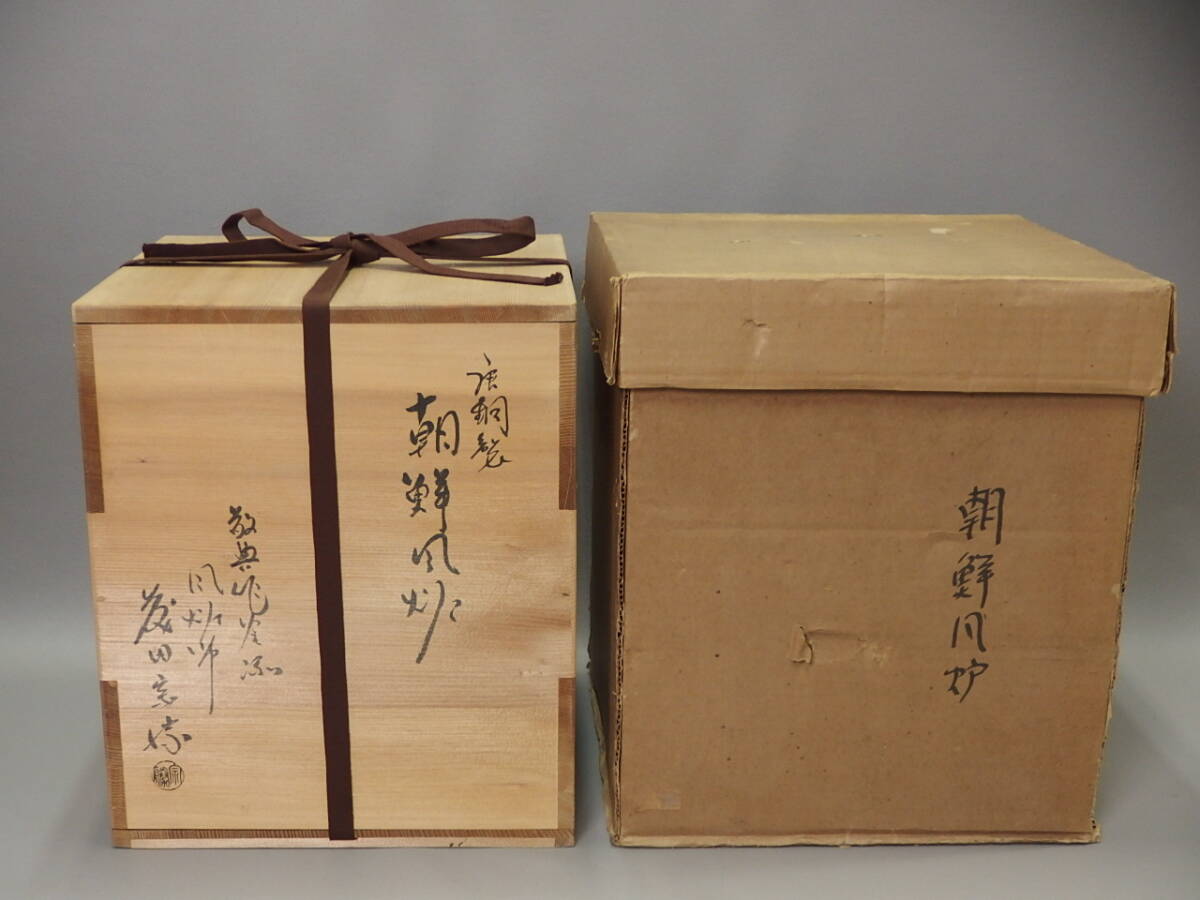 唐銅製
朝鮮風炉
敬典作釜添
風炉師
茂田宗
朝鮮風炉